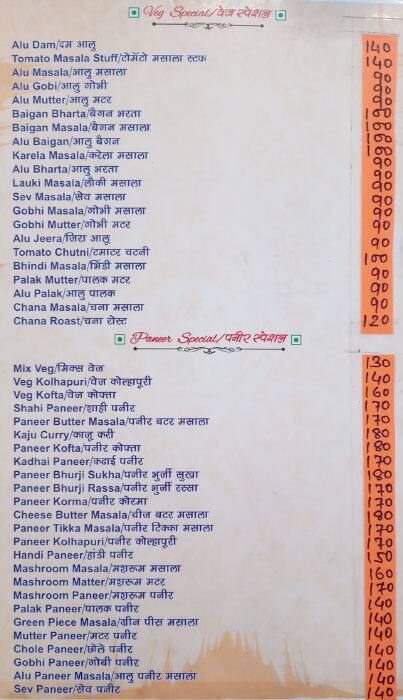 Veg Special/वेज स्पेशल
Alu Dam/दम आलु 140
Tomato Masala Stuff/टोमेंटो मसाला स्टफ 140
Alu Masala/आलु मसाला 90
Alu Gobi/आलु गोभी 90
Alu Mutter/आलु मटर 90
Baigan Bharta/बैगन भरता 100
Baigan Masala/बैगन मसाला 100
Alu Baigan/आलु बैगन 100
Karela Masala/करेला मसाला 100
Alu Bharta/आलु भरता 90
Lauki Masala/लौकी मसाला 90
Sev Masala/सेव मसाला 90
Gobhi Masala/गोभी मसाला 90
Gobhi Mutter/गोभी मटर 90
Alu Jeera/जिरा आलू 90
Tomato Chutni/टमाटर चटनी 90
Bhindi Masala/भिंडी मसाला 100
Palak Mutter/पालक मटर 90
Alu Palak/आलु पालक 90
Chana Masala/चना मसाला 90
Chana Roast/चना रोस्ट 120
Paneer Special/पनीर स्पेशल
Mix Veg/मिक्स वेज 130
Veg Kolhapuri/वेज कोल्हापूरी 140
Veg Kofta/वेज कोफ्ता 160
Shahi Paneer/शाही पनीर 170
Paneer Butter Masala/पनीर बटर मसाला 170
Kaju Curry/काजू करी 180
Paneer Kofta/पनीर कोफ्ता 180
Kadhai Paneer/कढाई पनीर 170
Paneer Bhurji Sukha/पनीर भुर्जी सुखा 180
Paneer Bhurji Rassa/पनीर भुर्जी रस्सा 170
Paneer Korma/पनीर कोरमा 170
Cheese Butter Masala/चीज बटर मसाला 180
Paneer Tikka Masala/पनीर टिक्का मसाला 170
Paneer Kolhapuri/पनीर कोल्हापूरी 170
Handi Paneer/हांडी पनीर 150
Mashroom Masala/मशरूम मसाला 160
Mashroom Matter/मशरूम मटर 170
Mashroom Paneer/मशरूम पनीर 140
Palak Paneer/पालक पनीर 140
Green Piece Masala/ग्रीन पीस मसाला 140
Mutter Paneer/मटर पनीर 140
Chole Paneer/छोले पनीर 140
Gobhi Paneer/गोबी पनीर 140
Alu Paneer Masala/आलु पनीर मसाला 140
Sev Paneer/सेव पनीर